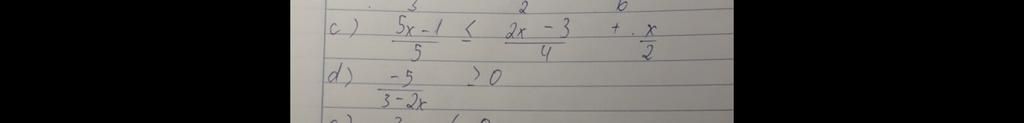 3 2 6
c) 5x-1/5 ≤ 2x-3/4 + x/2
d) -5/3-2x ≥ 0